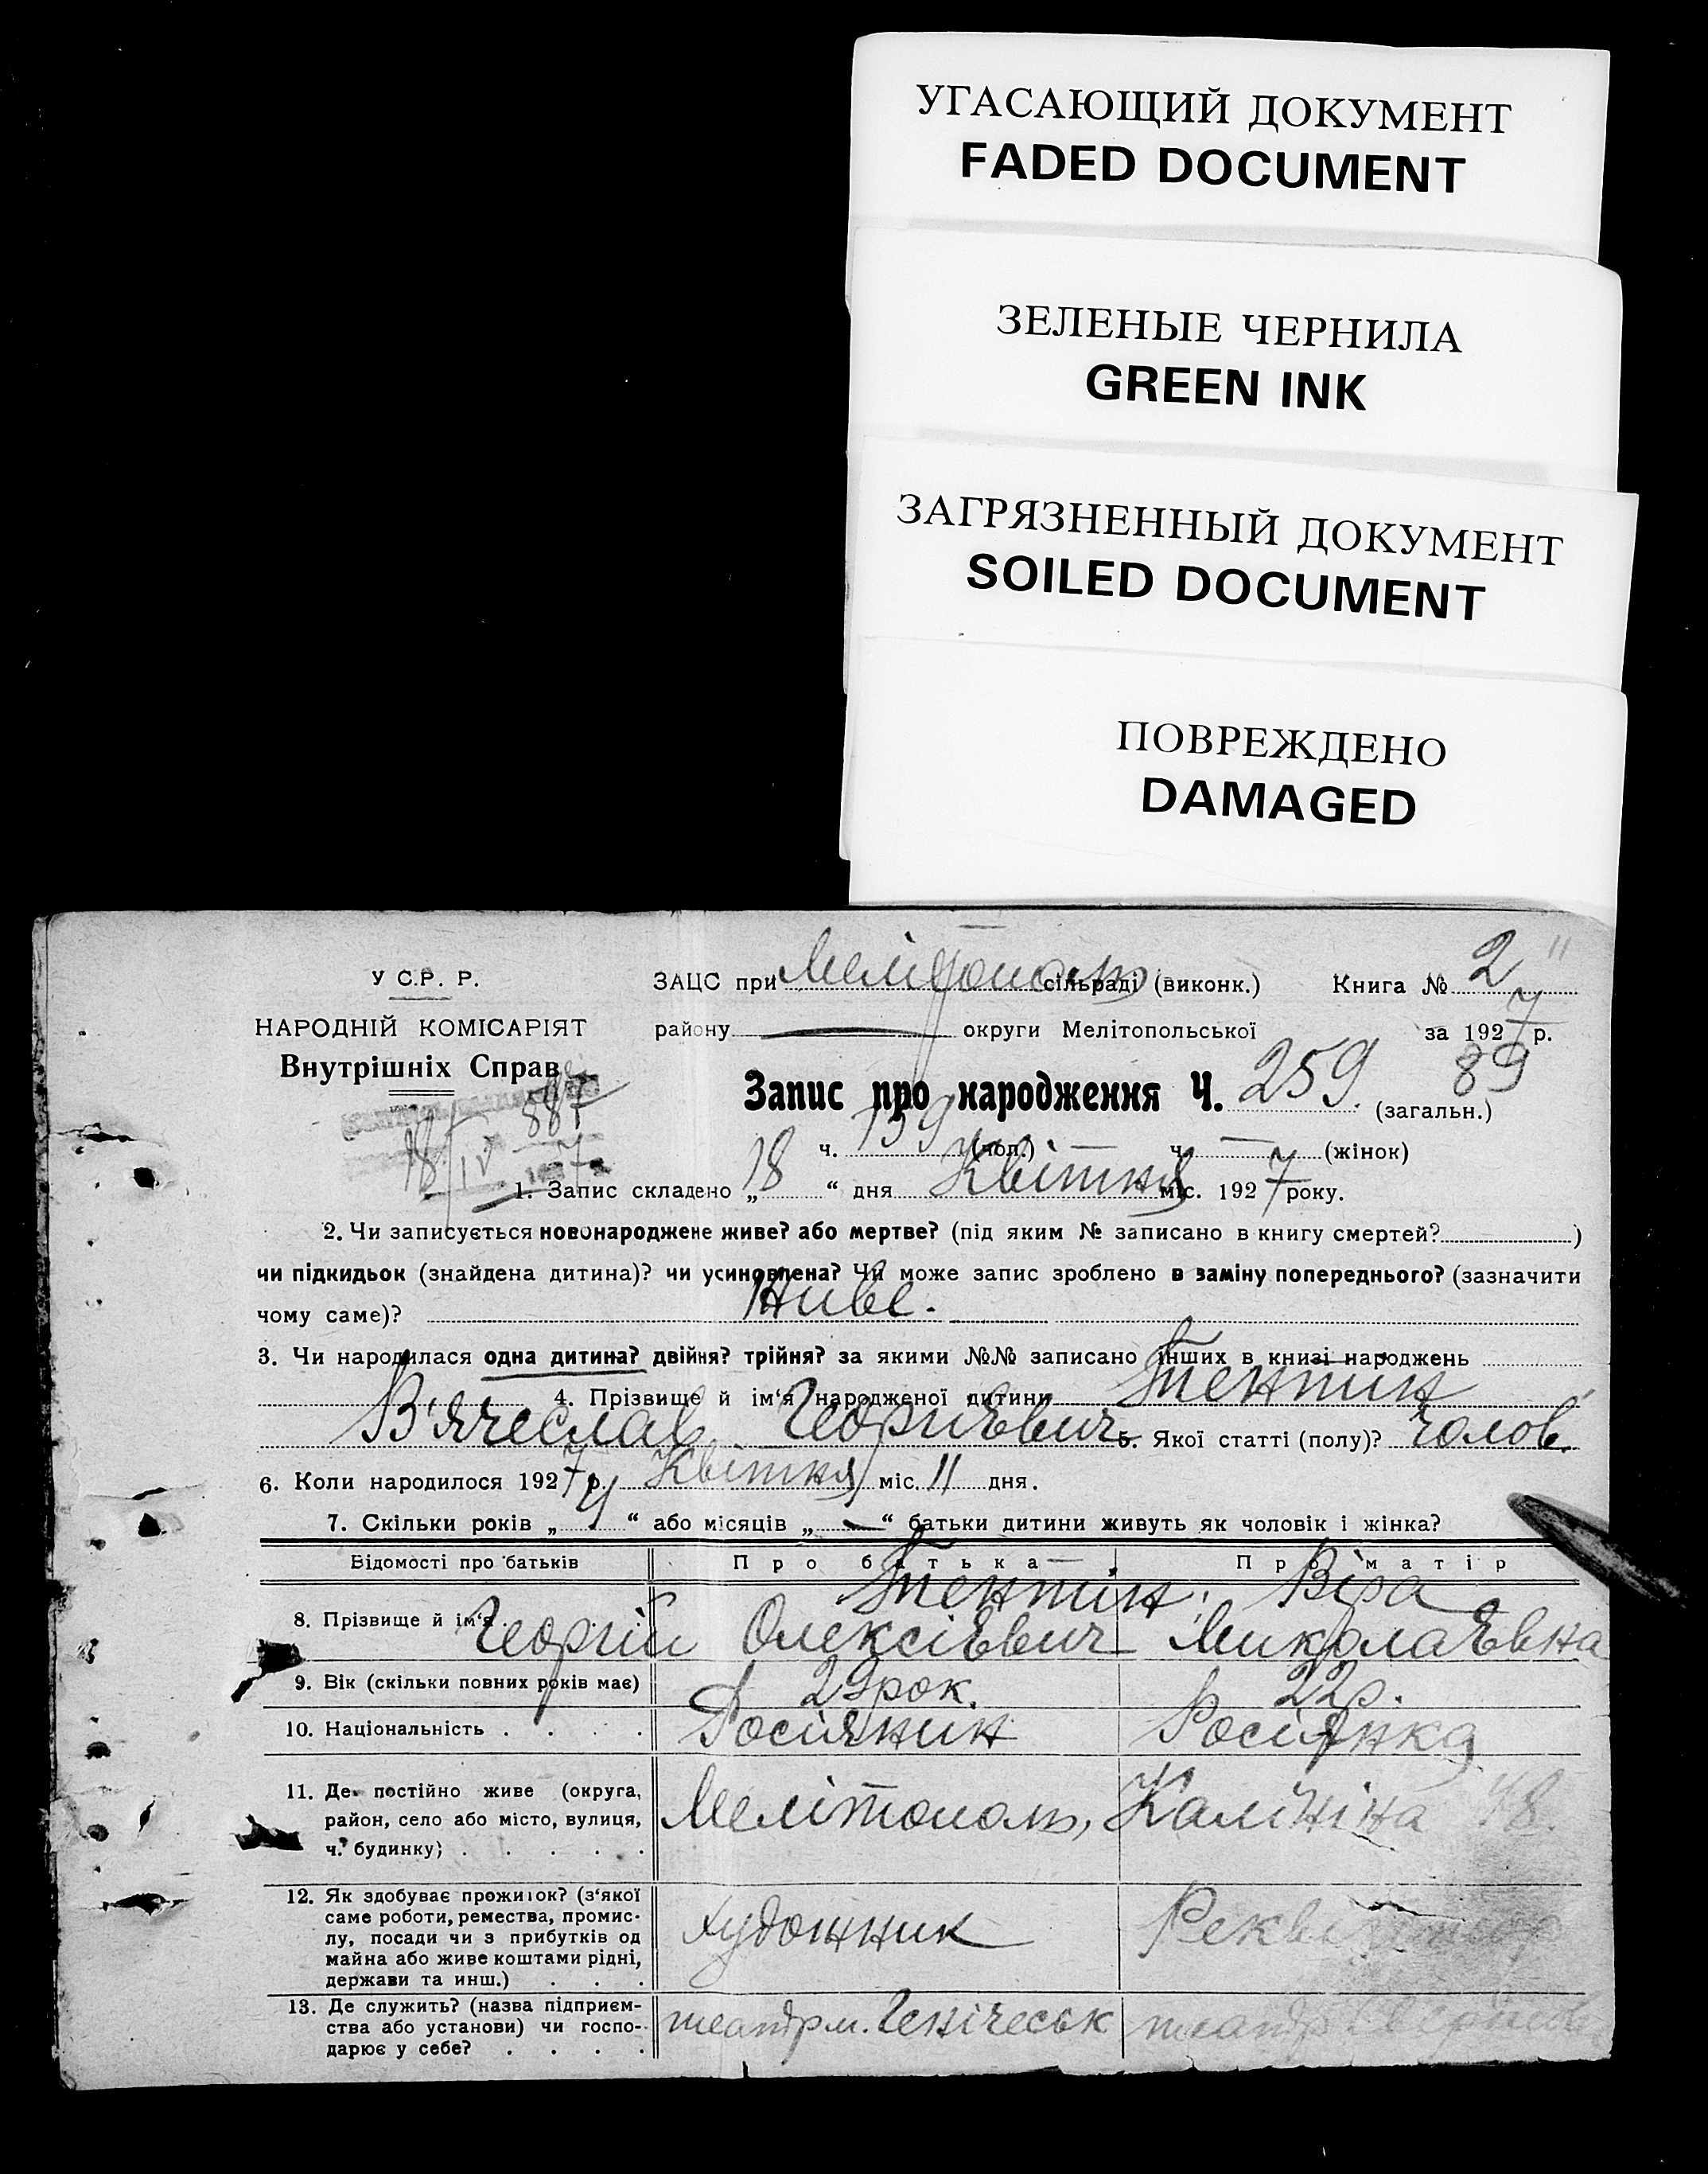 УГАСАЮЩИЙ ДОКУМЕНТ
FADED DOCUMENT
ЗЕЛЕНЫЕ ЧЕРНИЛА
GREEN INK
ЗАГРЯЗНЕННЫЙ ДОКУМЕНТ
SOILED DOCUMENT
ПОВРЕЖДЕНО
DAMAGED
У С.Р. Р.
НАРОДНІЙ КОМІСАРІЯТ
Внутрішніх Справ
887
18/IV 1927
11
ЗАЦС при Мелітополь сільраді (виконк.) Книга № 2
району — округи Мелітопольської за 1927 р.
89
Запис про народження Ч. 259. (загальн.)
ч. 159 (чол.) ч. — (жінок)
1. Запис складено „18“ дня Квітня міс. 1927 року.
2. Чи записується новонароджене живе? або мертве? (під яким № записано в книгу смертей? )
чи підкидьок (знайдена дитина)? чи усиновлена? Чи може запис зроблено в заміну попереднього? (зазначити
чому саме)? Живе.
3. Чи народилася одна дитина? двійня? трійня? за якими №№ записано інших в книзі народжень
4. Прізвище й ім‘я народженої дитини Тентин
В'ячеслав Георгієвич 5. Якої статті (полу)? Чолов.
6. Коли народилося 1927 р. Квітня міс. 11 дня.
7. Скільки років „4“ або місяців „—“ батьки дитини живуть як чоловік і жінка?
Відомості про батьків Про батька Про матір
8. Прізвище й ім‘я Тентін Георгій Олексієвич Віра Миколаєвна
9. Вік (скільки повних років має) 29 рок. 22 р.
10. Національність . . . . Росіянин Росіянка
11. Де постійно живе (округа,
район, село або місто, вулиця,
ч. будинку) . . . . . Мелітополь, Калініна 48.
12. Як здобуває прожиток? (з‘якої
саме роботи, ремества, промис-
лу, посади чи з прибутків од
майна або живе коштами рідні,
держави та инш.) . . . Художник
13. Де служить? (назва підприєм-
ства або установи) чи госпо-
дарює у себе? . . . . театр м. Генічеськ театр